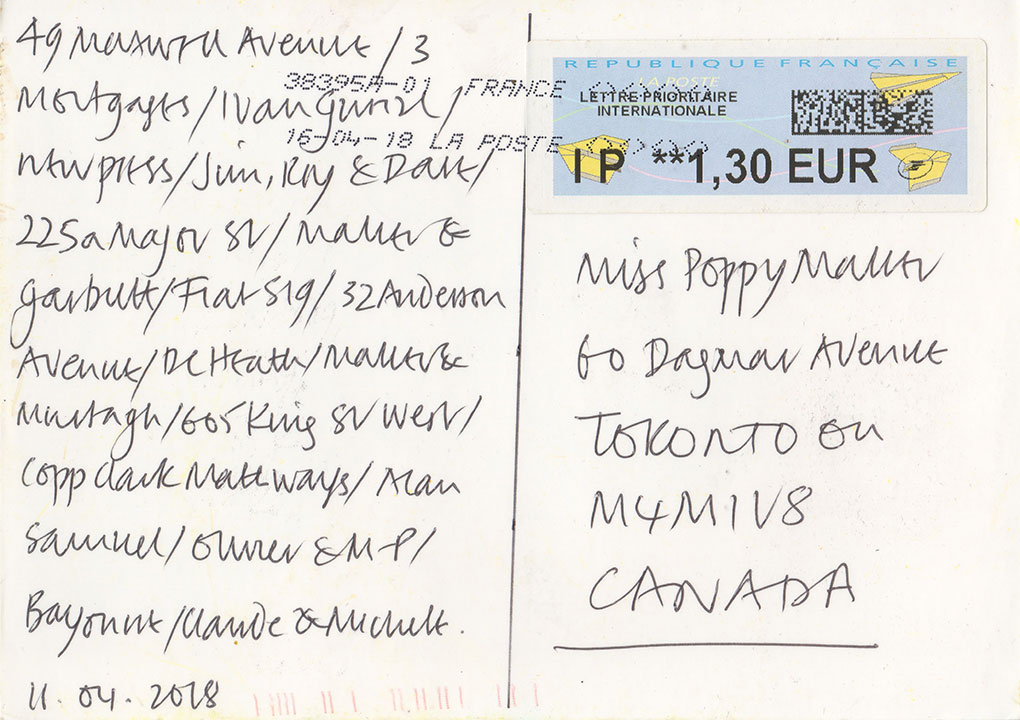 49 Maxwell Avenue / 3
Mortgages / Ivan /
newpress / Jim, Roy & Dave /
225a Major St / Maller &
Garbutt / Fiat 519 / 32 Anderson
Avenue / DC Heath / Maller &
Murtagh / 605 King St West /
Copp Clark Mathways / Alan
Samuel / Olivier & M-P /
Bayonne / Claude & Michele.
11. 04. 2018
38395A-01 FRANCE
16-04-18 LA POSTE
REPUBLIQUE FRANÇAISE
LA POSTE
LETTRE PRIORITAIRE
INTERNATIONALE
IP **1,30 EUR
Miss Poppy Maller
60 Dagmar Avenue
TORONTO ON
M4M1V8
CANADA